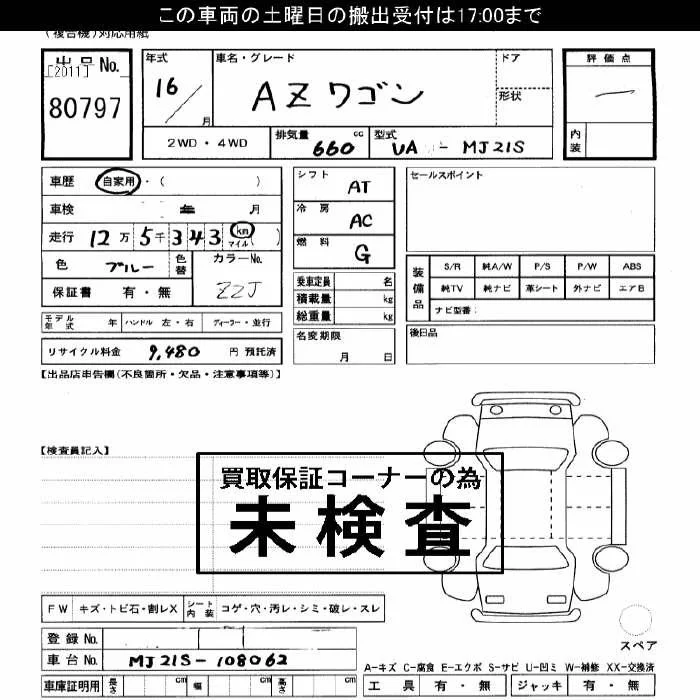 この車両の土曜日の搬出受付は17:00まで
(複合機)対応用紙
出品 No.
[2011]
80797
年式
16/
月
車名・グレード
AZワゴン
ドア
形状
評価点
―
内装
2WD・4WD
排気量
660
cc
型式
UA - MJ21S
車歴 自家用・( )
車検 年 月
走行 12万5千343 km マイル( )
色 ブルー 色替 カラーNo.
ZZJ
保証書 有・無
シフト AT
冷房 AC
燃料 G
セールスポイント
乗車定員 名
積載量 kg
総重量 kg
装備品
S/R 純A/W P/S P/W ABS
純TV 純ナビ 革シート 外ナビ エアB
ナビ型番:
モデル年式 年 ハンドル 左・右 ディーラー・並行
名変期限
月 日
後日品
リサイクル料金 9,480 円 預託済
【出品店申告欄(不良箇所・欠品・注意事項等)】
【検査員記入】
買取保証コーナーの為
未検査
FW キズ・トビ石・割レX シート内装 コゲ・穴・汚レ・シミ・破レ・スレ
スペア
登録 No.
車台 No. MJ21S-108062
A-キズ C-腐食 E-エクボ S-サビ U-凹ミ W-補修 XX-交換済
車庫証明用 長さ cm 幅 cm 高さ cm
工具 有・無 ジャッキ 有・無